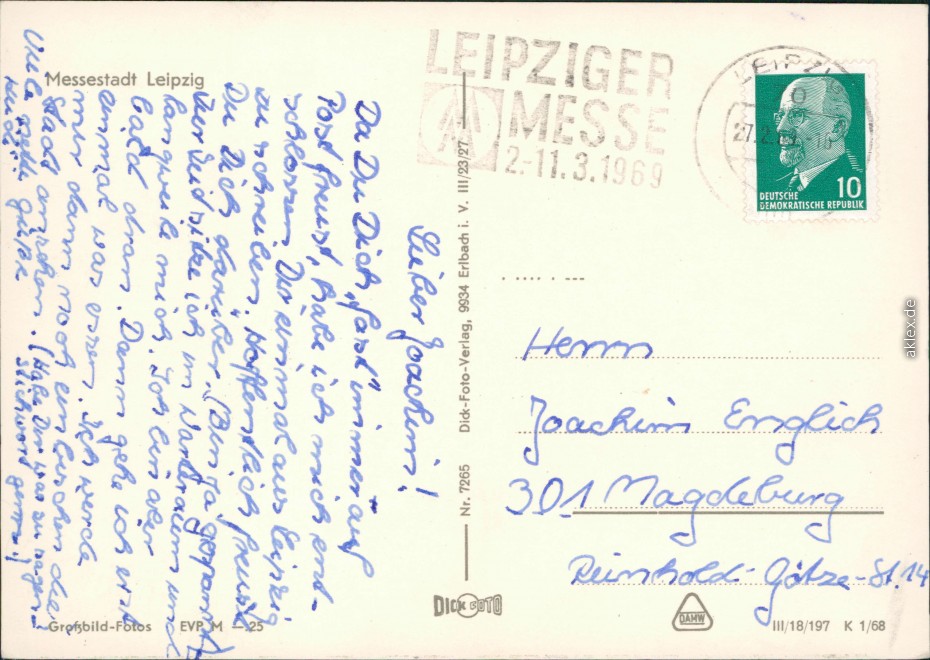 Messestadt Leipzig
Lieber Joachim!
Da Du Dich "fast" immer auf
Post freust, habe ich mich ent-
schlossen Dir einmal aus Leipzig
zu schreiben. Hoffentlich freust
Du Dich darüber. (Bin ja gespannt)
Zur Zeit sitze ich im Wartraum und
langweile mich. Ich bin aber
bald dran. Dann gehe ich erst
einmal was essen. Ich werde
mir dann noch ein bischen die
Stadt ansehen. (Habe Dir was zu sagen
Stichwort
Viele Grüße
Großbild-Fotos EVP M -25
Nr. 7265 Dick-Foto-Verlag, 9934 Erlbach i. V. III/23/27
LEIPZIGER
MESSE
2.-11.3.1969
LEIPZIG
27.2.
DEUTSCHE
DEMOKRATISCHE REPUBLIK
10
Herrn
Joachim Englich
301 Magdeburg
Reinhold-Götze-St. 14
DICK FOTO
DAMW
III/18/197 K 1/68
aklex.de